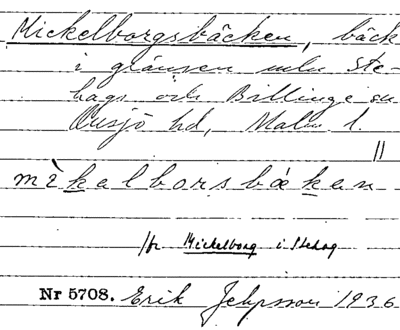 Mickelborgsbäcken, bäck
i gränsen mln Ste-
hags och Billinge sn
Onsjö hd, Malm. l.
||
mìkalborsbäkan
/fr Mickelborg i Stehag
Nr 5708. Erik Jeppsson 1936